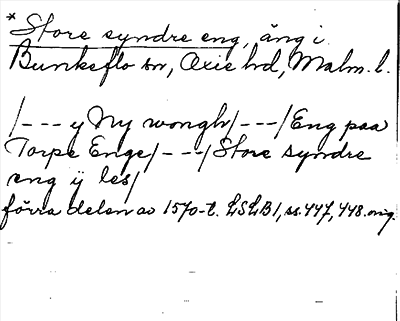 * Store syndre eng, äng i
Bunkeflo sn, Oxie hd, Malm. l.
/---y Ny wongh/---/Eng paa
Torpe Enge/---/Store syndre
eng ÿ les/
förra delen av 1570-t. LSLB1, ss. 447, 448. orig.